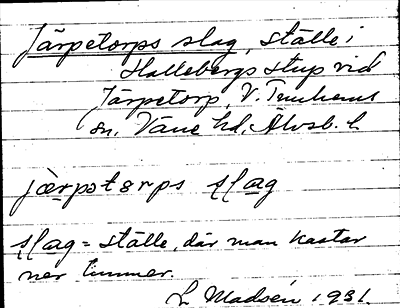 Järpetorps slag, ställe i
Hallebergs stup vid
Järpetorp, V. Tunhems
sn, Väne hd, Älvsb. l.
jærpstɵrps slag
slag = ställe, där man kastar
ner timmer.
L. Madsén 1931.